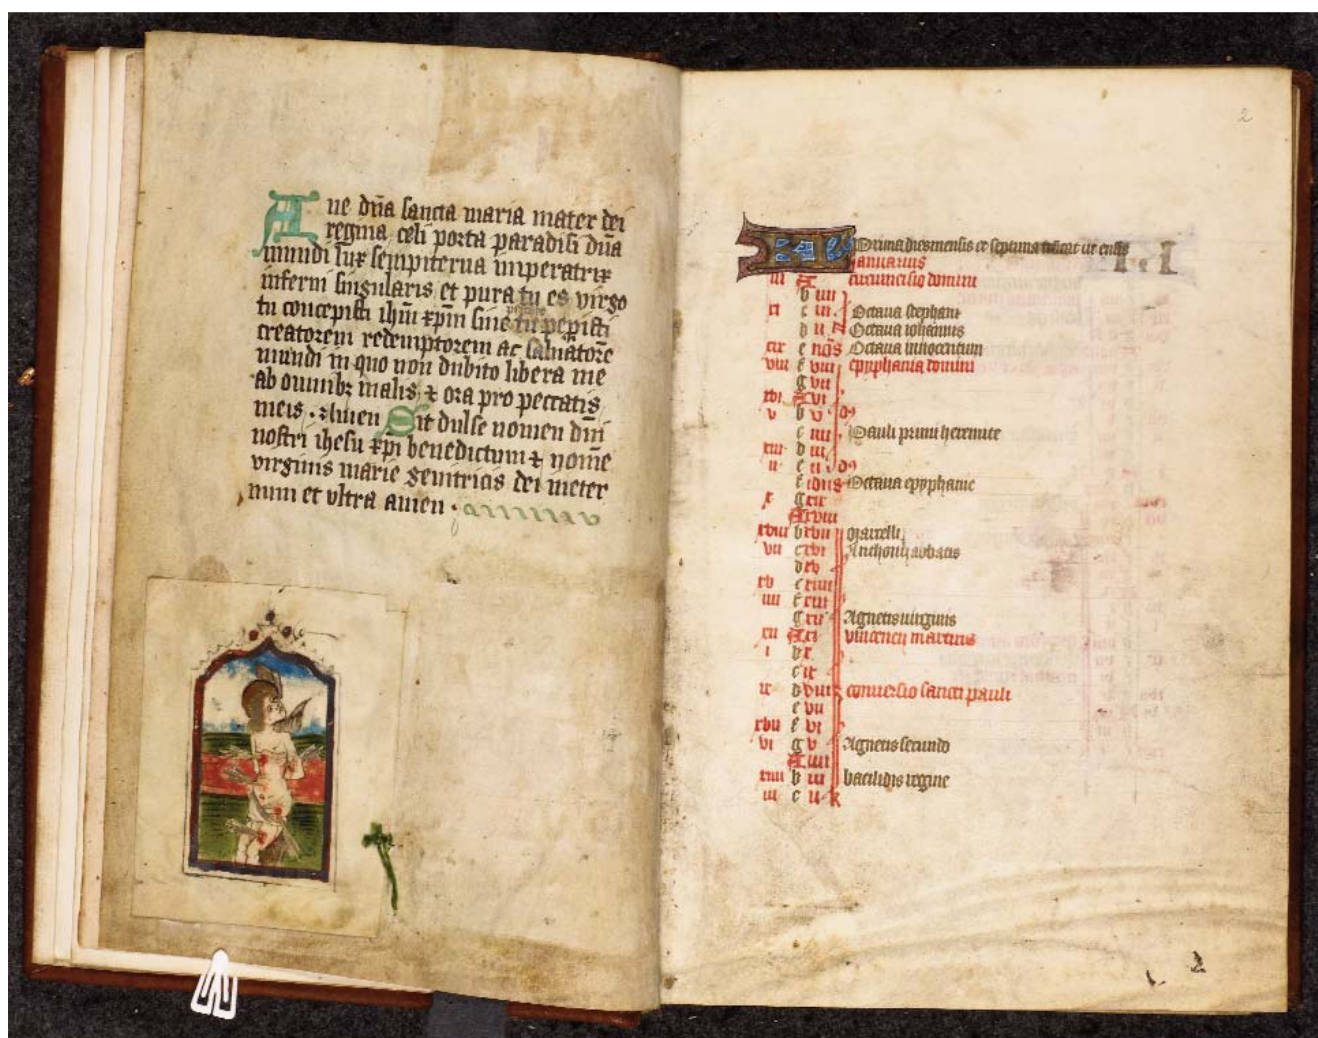 Aue dn̄a sancta maria mater dei
regina celi porta paradisi dn̄a
mundi lux sempiterna imperatrix
inferni singularis et pura tu es virgo
tu concepisti ihm̄ xp̄m sine tu pepisti
creatorem redemptorem ac saluatorē
mundi in quo non dubito libera me
ab omnibꝫ malis ⁊ ora pro peccatis
meis · Amen Sit dulse nomen dn̄i
nostri ihesu xp̄i benedictum ⁊ nomē
virginis marie genitricis dei in eter
num et vltra amen ·
2
KL Prima dies mensis et septima ut ensis
Ianuarius
iii A Circumcisio domini
b iiii
xi c iii Octaua stephani
d ii Octaua iohannis
xix e nōs Octaua innocentum
viii f viii epyphania domini
g vii
xvi A vi
v b v
c iiii Pauli primi heremite
xiii d iii
ii e ii
f idus Octaua epyphanie
x g xix
A xviii
xviii b xvii Marcelli
vii c xvi Anthonij abbatis
d xv
xv e xiiii
iiii f xiii
g xii Agnetis uirginis
xii A xi vincencij martiris
i b x
c ix
ix d viii conuersio sancti pauli
e vii
xvii f vi
vi g v Agnetis secundo
A iiii
xiiii b iii batildis regine
iii c ii